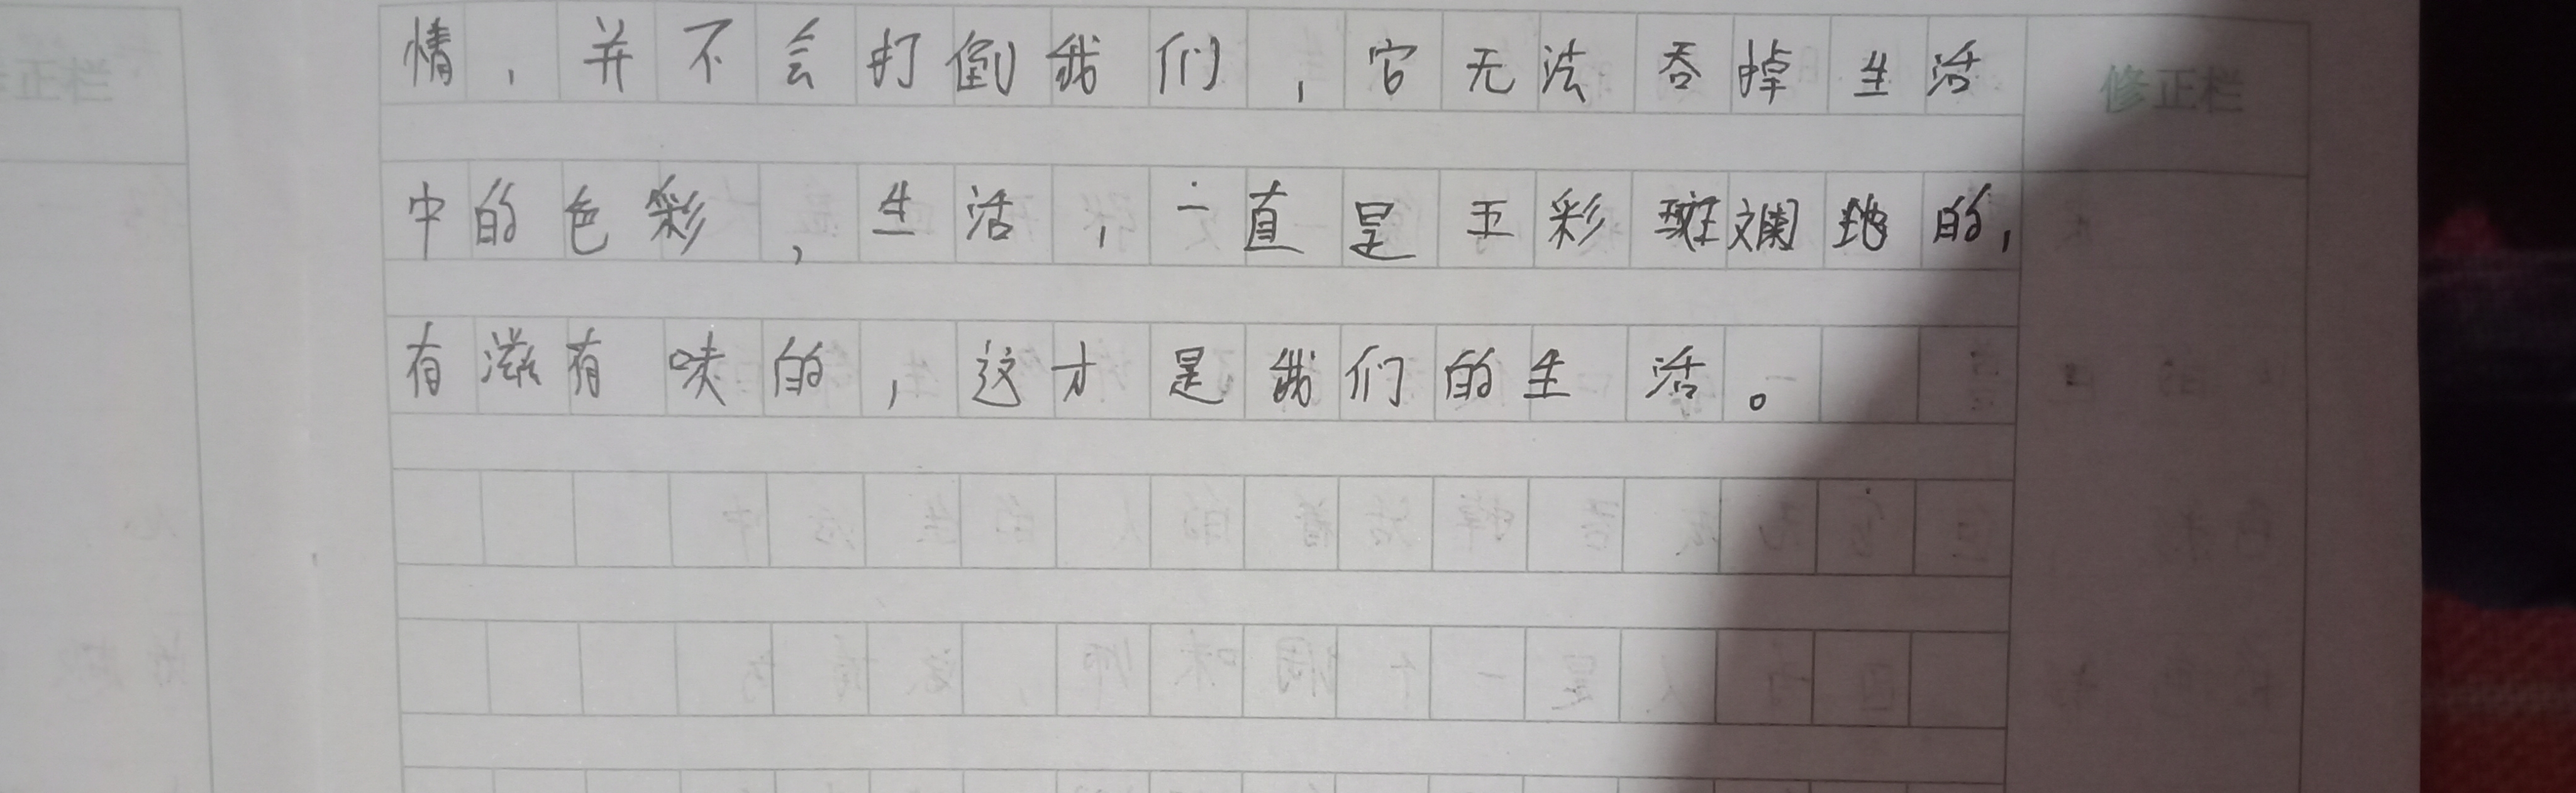 情，并不会打倒我们，它无法吞掉生活
修正栏
中的色彩，生活，一直是五彩斑斓地的，
有滋有味的，这才是我们的生活。
正栏